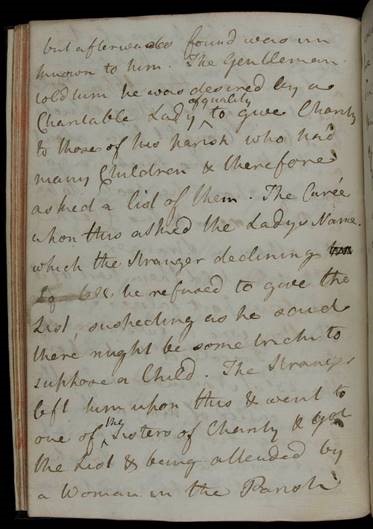 but afterwards found was un
known to him. The Gentleman
told him he was desired by a
Charitable Lady of quality to give Charity
to those of his parish who had
many Children & therefore
asked a list of them. The Curée
upon this asked the Ladys Name.
which the stranger declining
he refused to give the
List, suspecting as he said
there might be some trick to
suppose a Child. The Stranger
left him upon this & went to
one of the Sisters of Charity & got
the List & being attended by
a Woman in the Parish